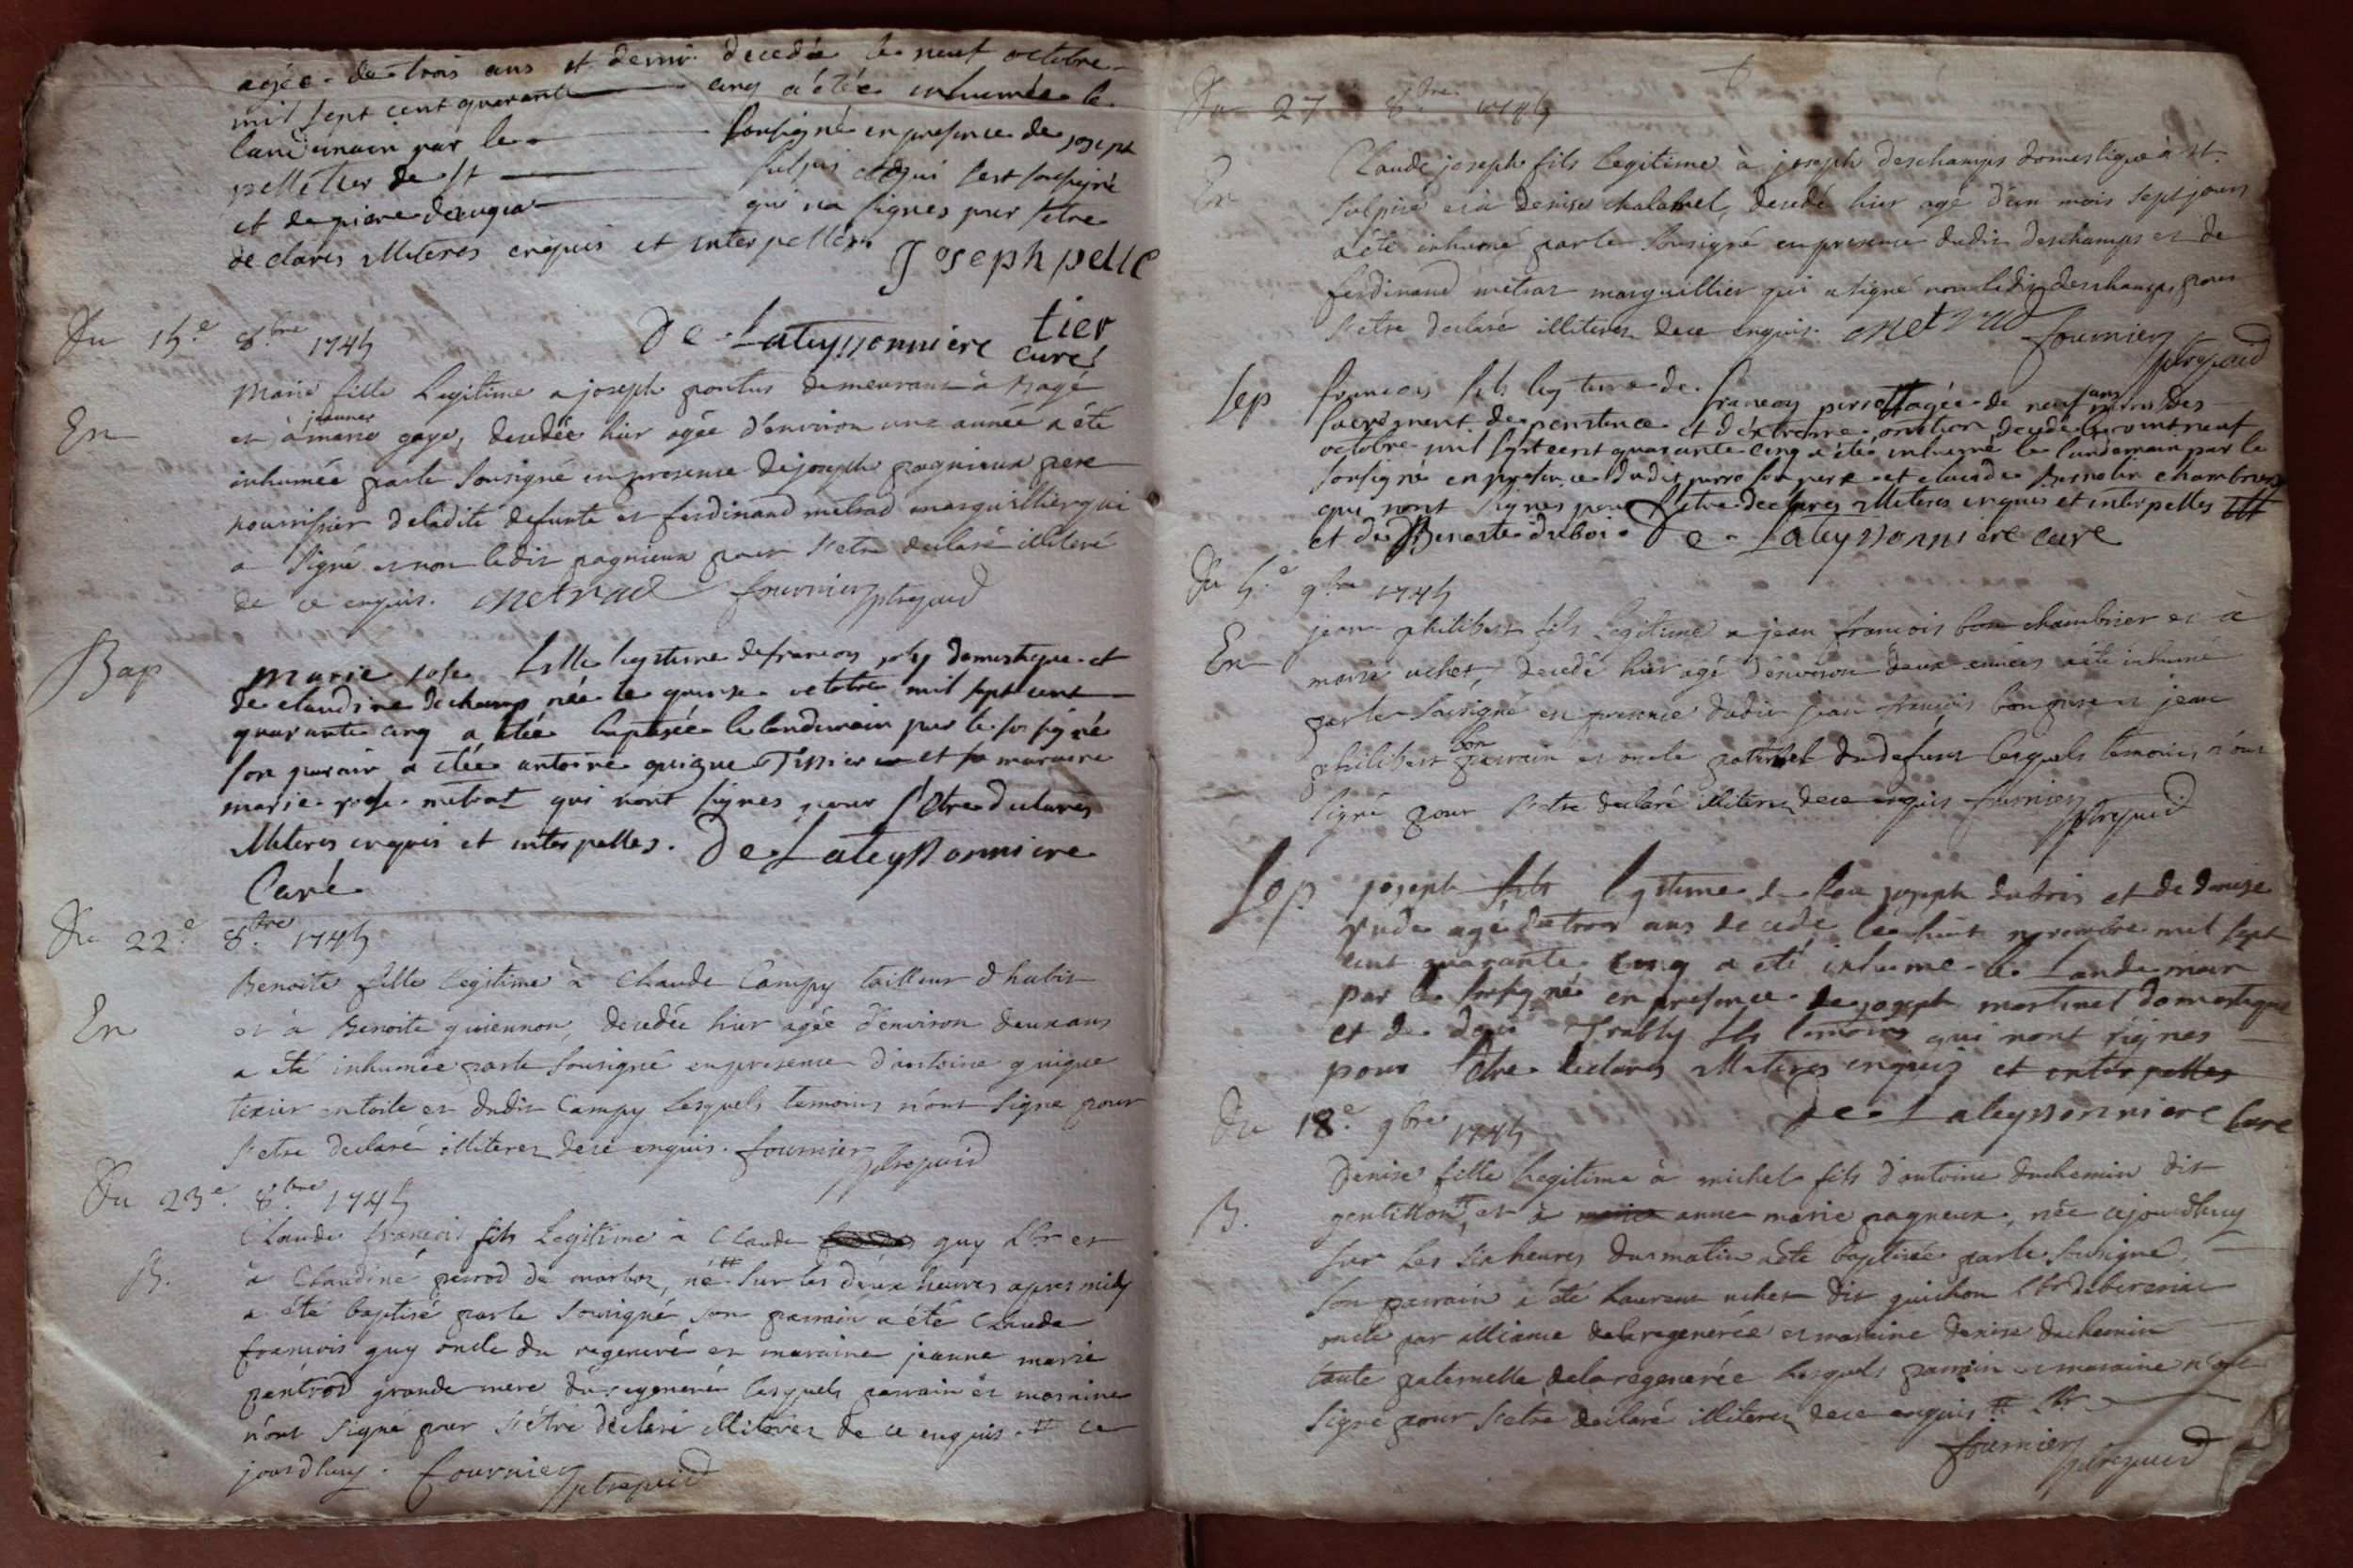 agée de trois ans et demi decedée le neuf octobre
mil sept cent quarante cinq a étée inhumée le
landemain par le sousigné en presence de joseph
pelletier de st sulpis qui sest sousigné
et de piere qui na signes pour setre
declares illiteres enquis et interpelles Joseph pelle
tier
De Lateyssonniere curé
Du 15e 8bre 1745
En
Marie fille Legitime a joseph pontus demeurant à Bagé
et à jeanne marie gaye, decedée hier agée d'environ une année a été
inhumée par le sousigné en presence de joseph pagnieux pere
nourrissier de ladite defunte et ferdinand metrad marguillier qui
a signé et non ledit pagnieux pour s'etre declaré illiteré
de ce enquis. metrad fournier ptre
Bap
marie jose fille legitime de francoy joly domestique et
de claudine dechamp née le quinse octobre mil sept cent
quarante cinq a étée baptisée le landemain par le sousigné
son parain a étée antoine guigue Tissier et sa maraine
marie metrat qui nont signes pour s'etre declarés
illiteres enquis et interpelles. De Lateyssonniere
Curé
Du 22e 8bre 1745
En
Benoite fille legitime à Claude Campy tailleur d'habit
et à Benoite guiennon, decedée hier agée d'environ deux ans
a été inhumée par le sousigné en presence d'antoine guigue
texier en toile et dudit Campy lesquels temoins n'ont signé pour
s'etre declaré illiterez de ce enquis. fournier ptre
Du 23e 8bre 1745
B.
Claude francois fils Legitime à Claude guy Lbr et
à Claudine perrod de marboz, né # sur les deux heures apres midy
a été baptisé par le sousigné son parrain a été Claude
francois guy oncle du regeneré et maraine jeanne marie
grande mere du regeneré lesquels parrain et marraine
n'ont signé pour s'etre declaré illiterez de ce enquis. # ce
jourdhuy. fournier ptre
Du 27e 8bre 1745
En
Claude joseph fils legitime à joseph deschamps domestique à st
sulpice et à denise chalamel, decedé hier agé d'un mois sept jours
a été inhumé par le sousigné en presence dudit deschamps et de
ferdinand metras marguillier qui a signé non ledit deschamps pour
s'etre declaré illiterez de ce enquis. metrad fournier ptre
Sep
francois fils legitime de francoy agée de neuf ans des
sacrement de penitence et d'extreme onction decedé le vintneuf
octobre mil sept cent quarante cinq a été inhumé le landemain par le
sousigné en presence dudit son pere et claude
qui nont signes pour s'etre declares illiteres enquis et interpelles
et de Benoite duboi. De Lateyssonniere curé
Du 5e 9bre 1745
En
jean philibert fils legitime a jean francois bon chambrier et à
marie uchet, decedé hier agé d'environ deux années a été inhumé
par le sousigné en presence dudit jean francois bon pere et jean
philibert bon parrain et oncle paternel du defunt lesquels temoins n'ont
signé pour s'etre declaré illiterez de ce enquis fournier ptre
Sep
joseph fils legitime de feu joseph dubois et de denise
agé de trois ans decedé le huit novembre mil sept
cent quarante cinq a été inhumé le landemain
par le sousigné en presence de joseph martinet domestique
et de temoins qui nont signes
pour s'etre declares illiteres enquis et interpelles
De Lateyssonniere Curé
Du 18e 9bre 1745
B.
Denise fille legitime à michel fils d'antoine duchemin dit
gentillon #, et à anne marie pagneux, née cejourdhuy
sur les six heures du matin a été baptisée par le sousigné
son parrain a été laurent uchet dit guichon Lbr
oncle par alliance de la regenerée et maraine denise duchemin
tante paternelle de la regenerée lesquels parrain et maraine n'ont
signé pour s'etre declaré illiterez de ce enquis # Lbr
fournier ptre